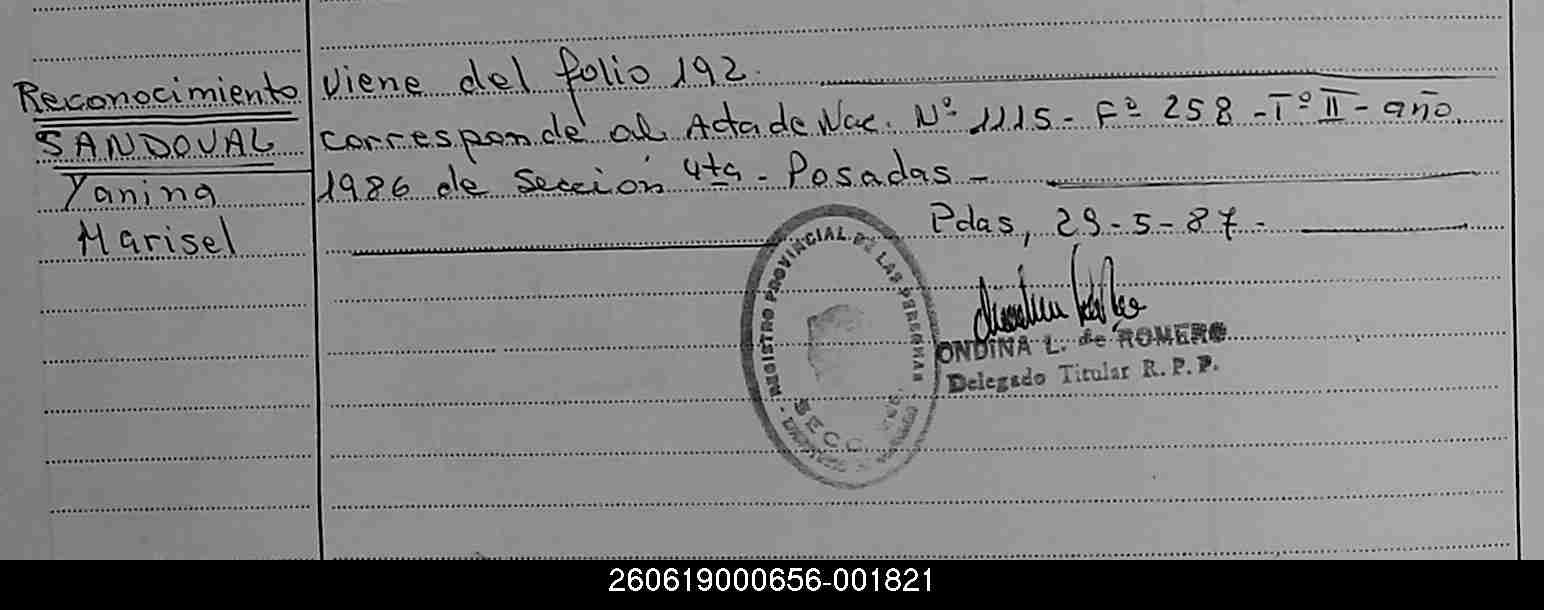 Reconocimiento
SANDOVAL
Yanina
Marisel
Viene del folio 192.
corresponde al Acta de Nac. Nº 1115 - Fº 258 - Tº II - año
1986 de Sección 4ta - Posadas -
Pdas, 29-5-87 -
REGISTRO PROVINCIAL DE LAS PERSONAS
SECC.
ONDINA L. de ROMERO
Delegado Titular R. P. P.
260619000656-001821